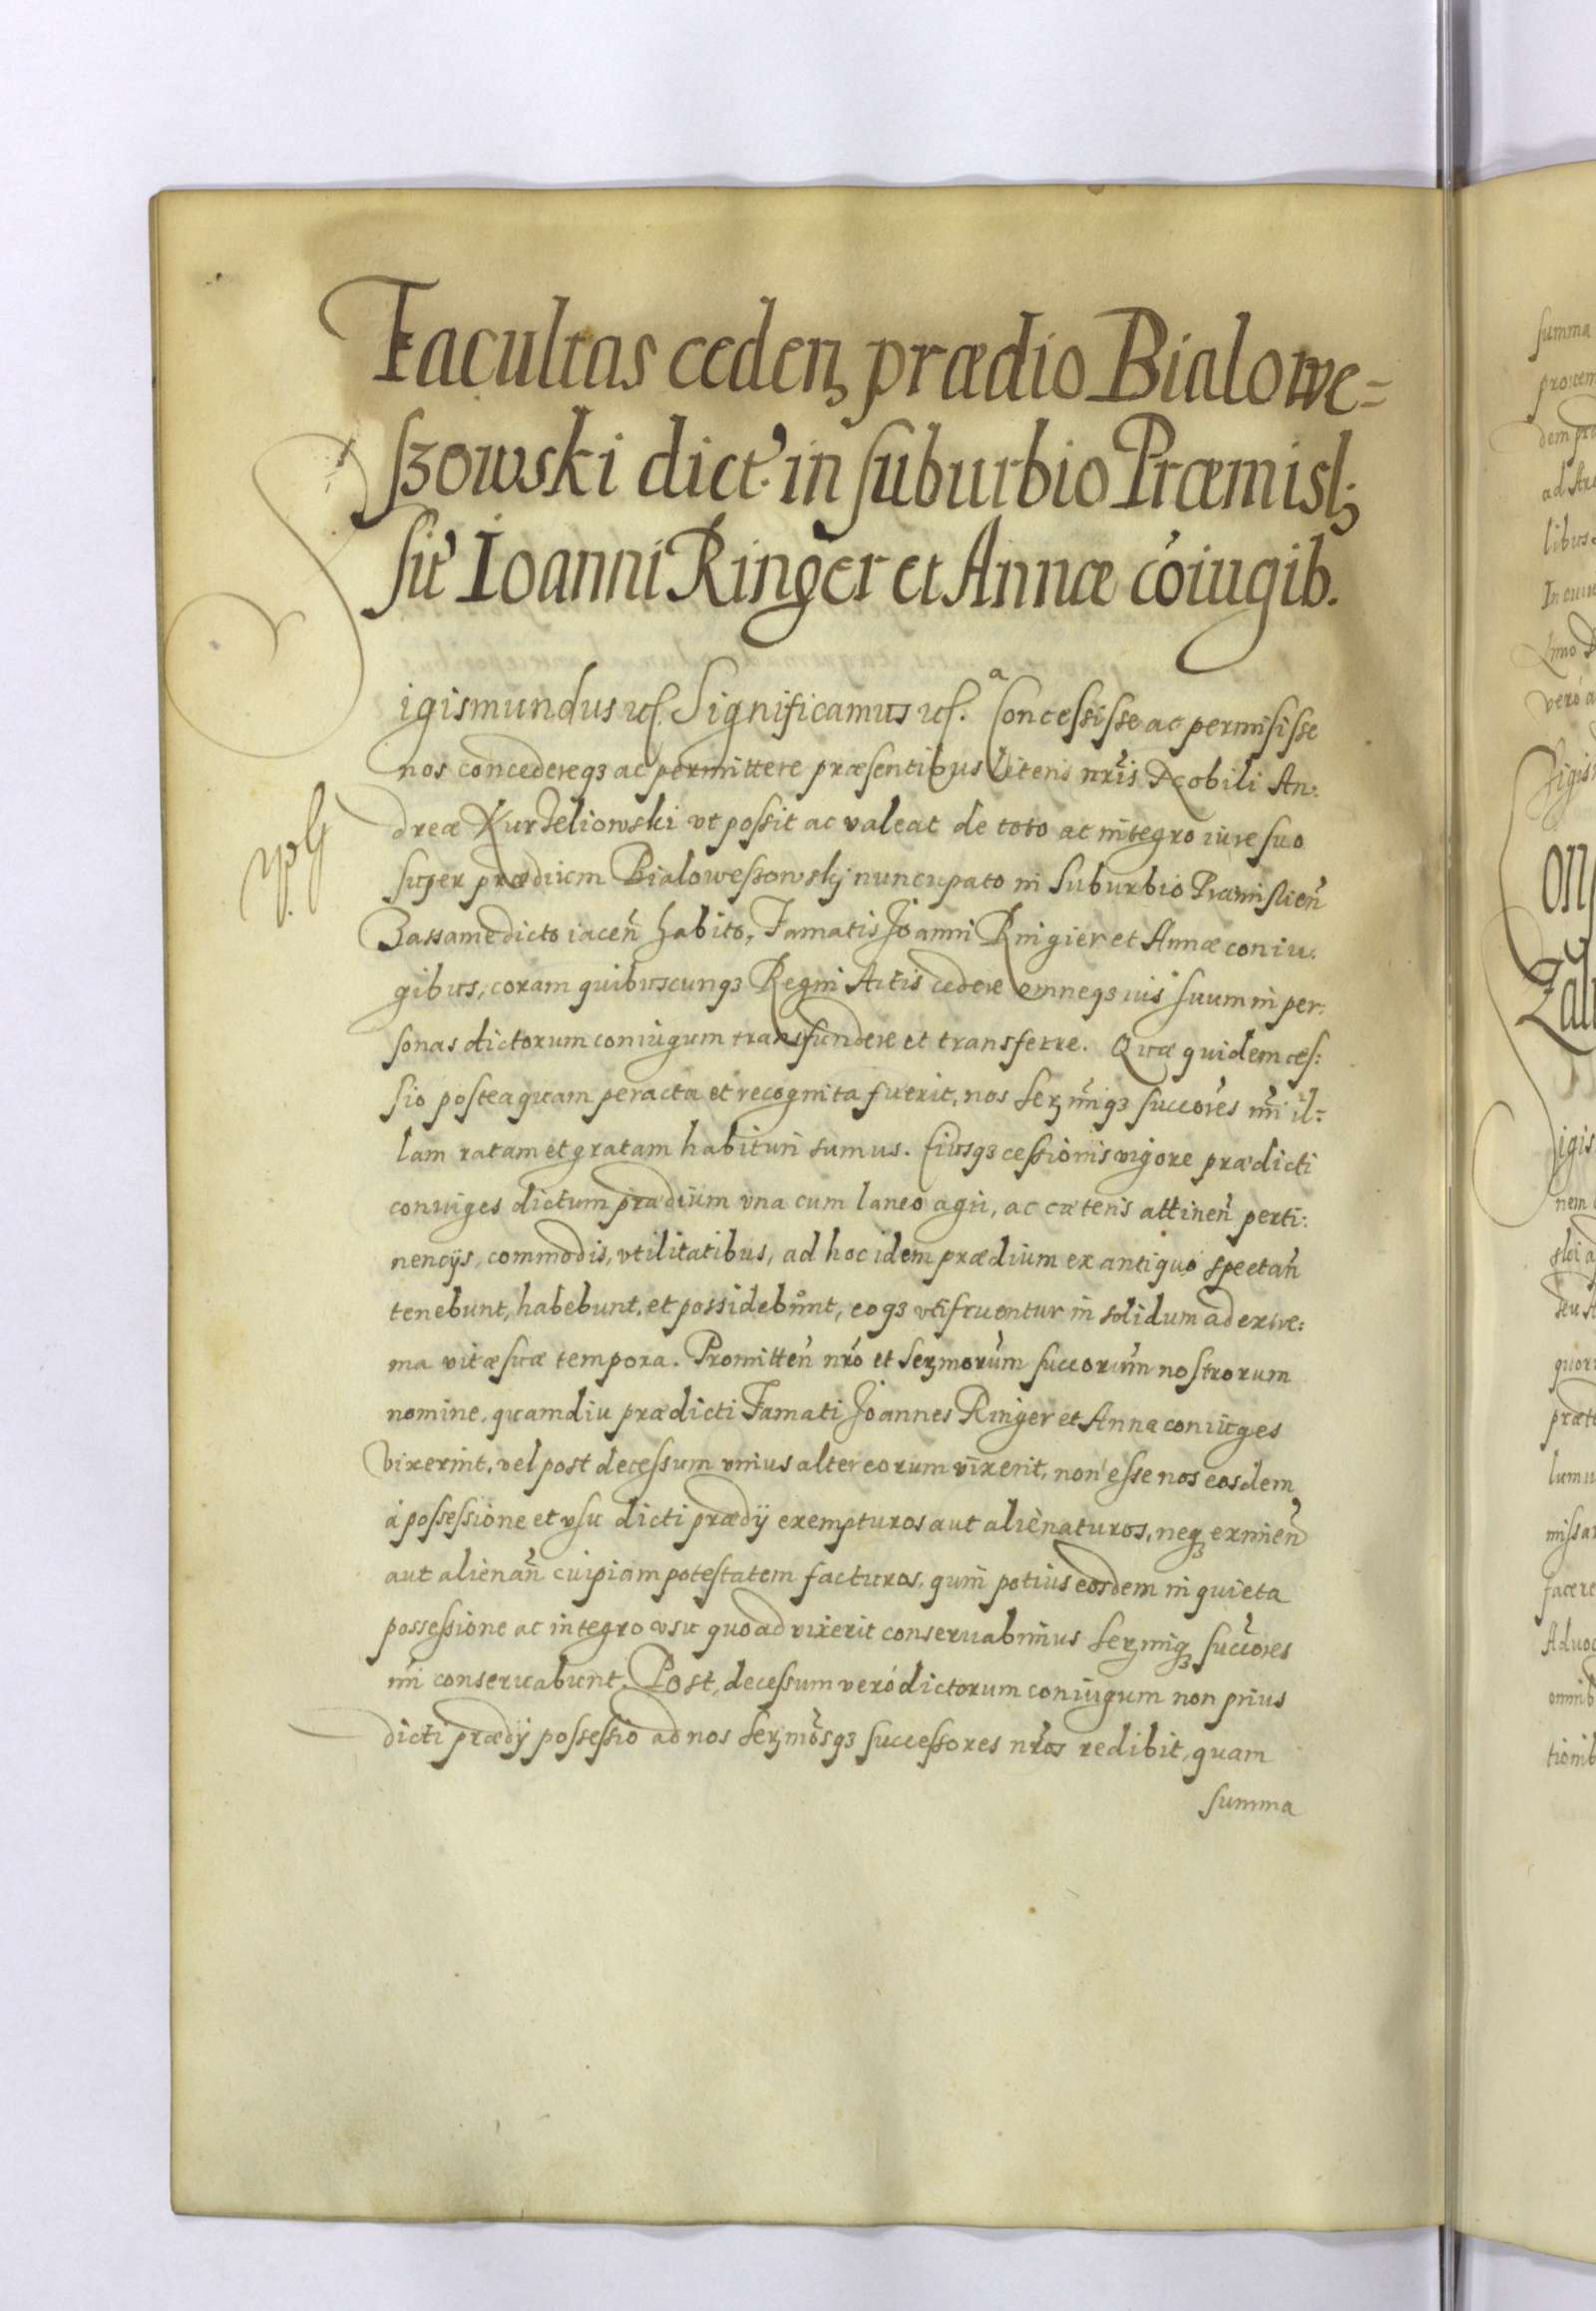 Facultas ceden₃ prædio Bialowe=
szowski dict: in suburbio Præmisl₃
sit' Ioanni Ringer et Annæ cōiugib.
igismundus etc. Significamus etc. Concessisse ac permisisse
nos concedereq₃ ac permittere præsentibus literis nr̃is Nobili An:
dreæ Kurdeliowski vt possit ac valeat de toto ac integro iure suo
super prædium Bialoweszowskj nuncupato in Suburbio Præmislien̄
Zassame dicto iacen̄ habito, Famatis Joanni Ringier et Annæ coniu:
gibus, coram quibuscunq₃ Regni Actis cedere omneq₃ ius suum in per:
sonas dictorum coniugum transfundere et transferre. Quæ quidem ces:
sio posteaquam peracta et recognita fuerit, nos Ser₃miq₃ succōres nr̄i il:
lam ratam et gratam habituri sumus. Eiusq₃ cessionis vigore prædicti
coniuges dictum prædium vna cum laneo agri, ac cæteris attinen̄ perti:
nencijs, commodis, vtilitatibus, ad hoc idem prædium ex antiquo spectan̄
tenebunt, habebunt, et possidebunt, eoq₃ vtifruentur in solidum ad extre:
ma vitæ suæ tempora. Promitten̄ nr̄o et Ser₃morūm succorūm nostrorum
nomine, quamdiu prædicti Famati Joannes Ringer et Anna coniuges
vixerint, vel post decessum vnius alter eorum vixerit, non esse nos eosdem
à possessione et vsu dicti prædij exempturos aut alienaturos, neq₃ eximen̄
aut alienan̄ cuipiam potestatem facturos, quin potius eosdem in quieta
possessione ac integro vsu quoad vixerit conseruabimus Ser₃miq₃ succōres
nr̄i conseruabunt. Post decessum verò dictorum coniugum non prius
dicti prædij possessio ad nos Ser₃mosq₃ successores nr̄os redibit, quam
summa